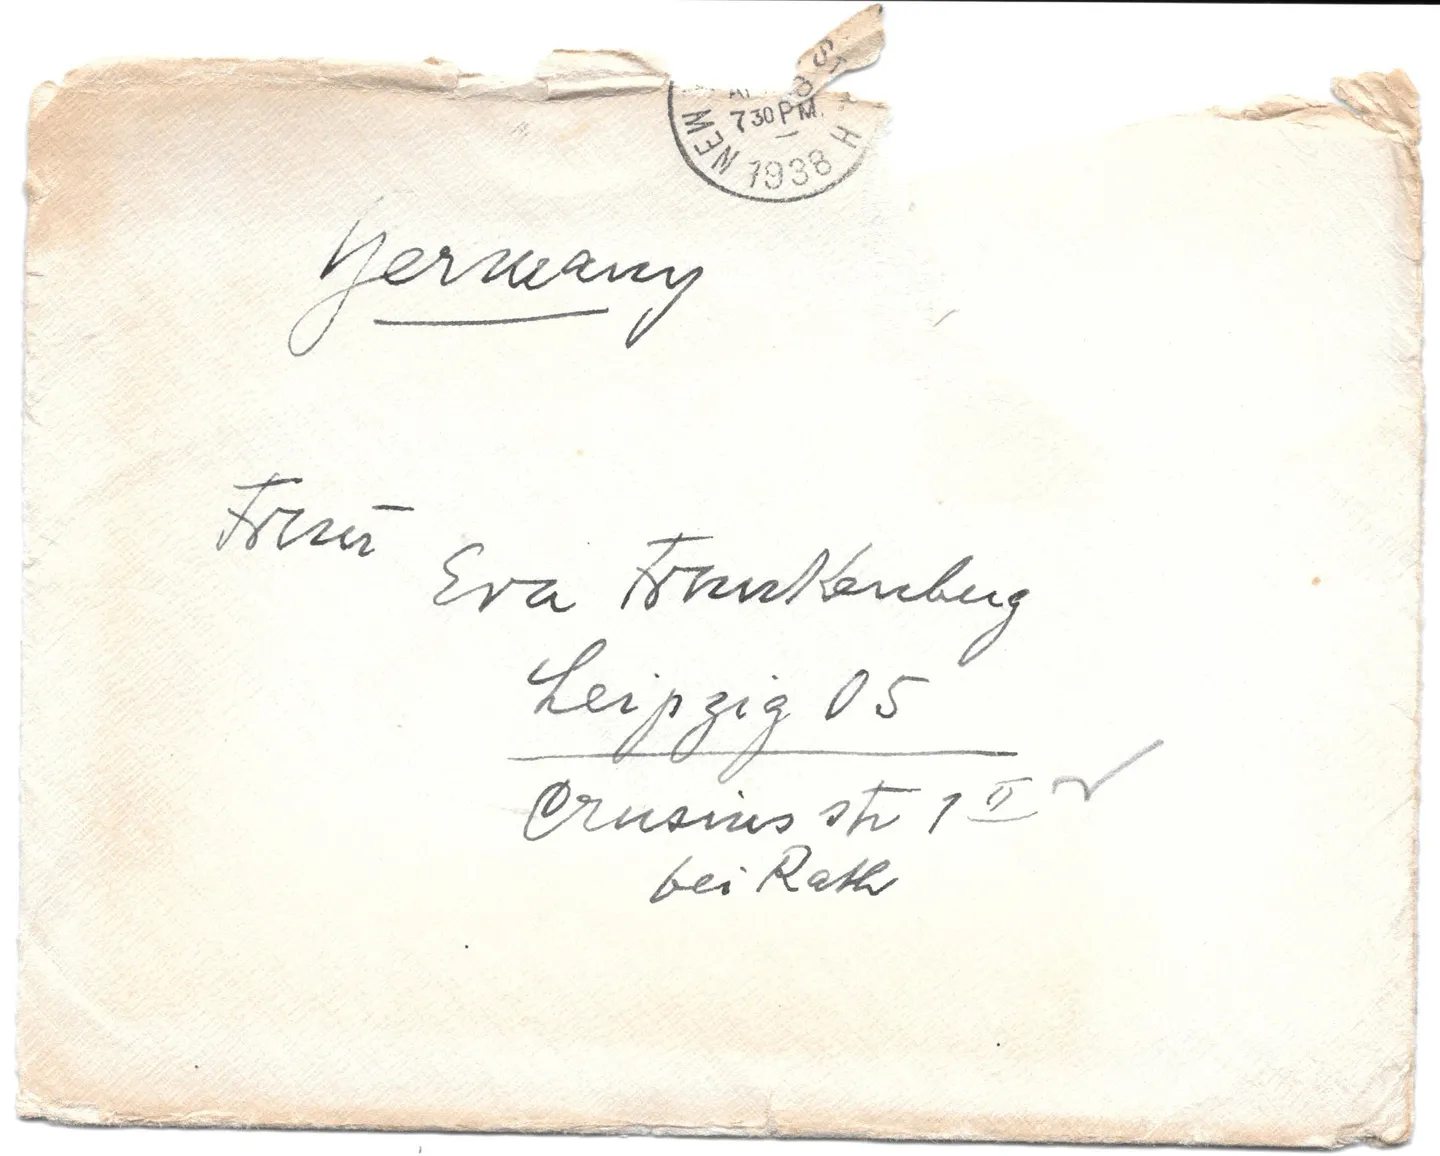 NEW 1938 H
730 PM.
Germany
Frau
Eva Frankenberg
Leipzig O5
Crusius str 1 II
bei Rath